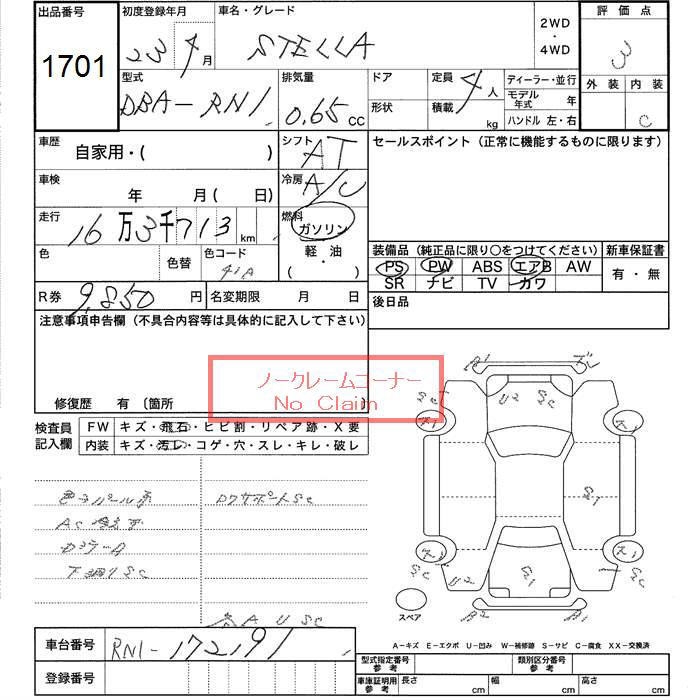 出品番号 初度登録年月 車名・グレード 2WD ・ 4WD 評価点
1701 23 9月 STELLA 3
型式 排気量 ドア 定員 ディーラー・並行 外装 内装
DBA-RN1 0.65 CC 形状 4人 積載 kg モデル年式 年 C
ハンドル 左・右
車歴 自家用・( ) シフト AT セールスポイント (正常に機能するものに限ります)
車検 年 月( 日) 冷房 A/C
走行 16万3千713km 燃料 ガソリン
軽・油
( ・ )
色 色替 色コード 41A
装備品 (純正品に限り○をつけてください) 新車保証書
PS PW ABS エアB AW 有・無
SR ナビ TV カワ
R券 9,850円 名変期限 月 日 後日品
注意事項申告欄 (不具合内容等は具体的に記入して下さい)
ノークレームコーナー
No Claim
修復歴 有 〔箇所 〕
検査員記入欄 FW キズ・飛石・ヒビ割・リペア跡・X要
内装 キズ・汚レ・コゲ・穴・スレ・キレ・破レ
下廻りSC
A U SC
U2 SC
S1
U2
スペア
A-キズ E-エクボ U-凹み W-補修跡 S-サビ C-腐食 XX-交換済
車台番号 RN1-172191
登録番号
型式指定番号 参考 類別区分番号 参考
車庫証明用 参考 長さ cm 幅 cm 高さ cm